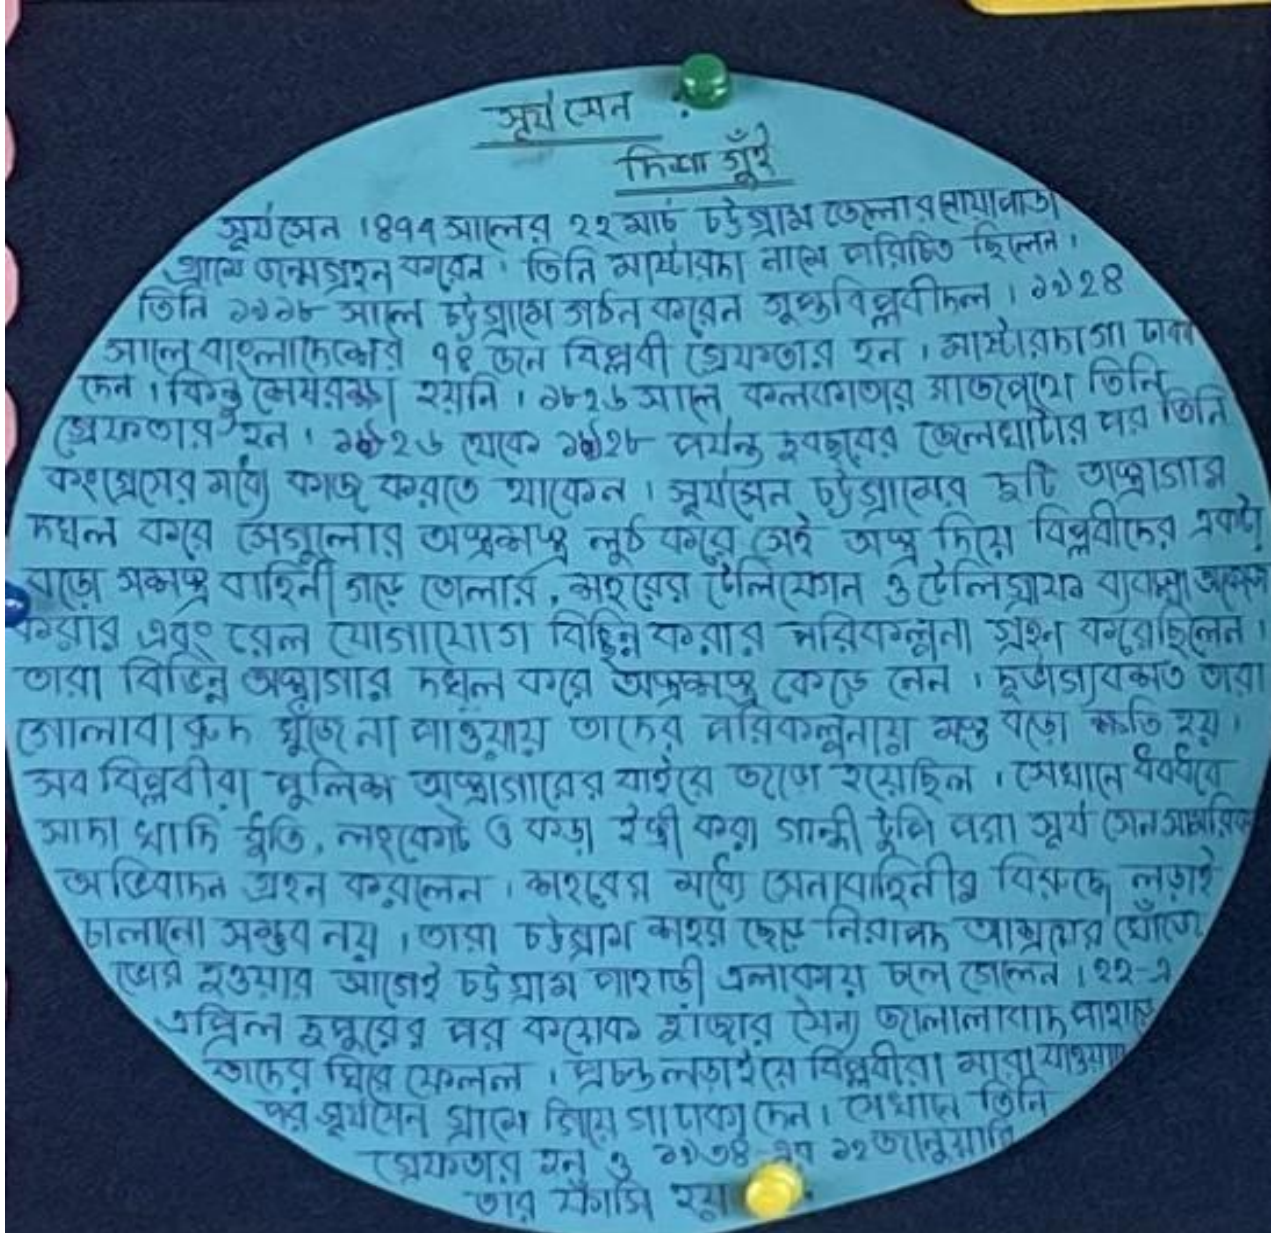 সূর্য সেন :
দিশা গুঁই
সূর্যসেন 1894 সালের ২২ মার্চ চট্টগ্রাম জেলার নোয়াপাড়া
গ্রামে জন্মগ্রহন করেন। তিনি মাস্টারদা নামে পরিচিত ছিলেন।
তিনি ১৯১৮ সালে চট্টগ্রামে গঠন করেন গুপ্তবিপ্লবীদল। ১৯24
সালে বাংলাদেশের ৭৪ জন বিপ্লবী গ্রেফতার হন। মাস্টারদা গা ঢাকা
দেন। কিন্তু শেষরক্ষা হয়নি। ১৮২৬ সালে কলকাতার রাজপথে তিনি
গ্রেফতার হন। ১৯২৬ থেকে ১৯২৮ পর্যন্ত দুবছরের জেলখাটার পর তিনি
কংগ্রেসের মধ্যে কাজ করতে থাকেন। সূর্যসেন চট্টগ্রামের দুটি অস্ত্রাগার
দখল করে সেগুলোর অস্ত্রশস্ত্র লুঠ করে সেই অস্ত্র দিয়ে বিপ্লবীদের একটা
বড়ো সশস্ত্র বাহিনী গড়ে তোলার, শহরের টেলিফোন ও টেলিগ্রাফ ব্যবস্থা
করার এবং রেল যোগাযোগ বিছিন্ন করার পরিকল্পনা গ্রহন করেছিলেন।
তারা বিভিন্ন অস্ত্রাগার দখল করে অস্ত্রশস্ত্র কেড়ে নেন। দূর্ভাগ্যবশত তারা
গোলাবারুদ খুঁজে না পাওয়ায় তাদের পরিকল্পনায় মস্ত বড়ো ক্ষতি হয়।
সব বিপ্লবীরা পুলিশ অস্ত্রাগারের বাইরে জড়ো হয়েছিল। সেখানে ধবধবে
সাদা খাদি ধুতি, লংকোট ও কড়া ইস্ত্রী করা গান্ধী টুপি পরা সূর্য সেন সামরিক
অভিবাদন গ্রহন করলেন। শহরের মধ্যে সেনাবাহিনীর বিরুদ্ধে লড়াই
চালানো সম্ভব নয়। তারা চট্টগ্রাম শহর ছেড়ে নিরাপদ আশ্রয়ের খোঁজে
ভোর হওয়ার আগেই চট্টগ্রাম পাহাড়ী এলাকায় চলে গেলেন। ২২-এ
এপ্রিল দুপুরের পর কয়েক হাজার সৈন্য জালালাবাদ পাহাড়ে
তাদের ঘিরে ফেলল। প্রচন্ড লড়াইয়ে বিপ্লবীরা মারা যাওয়ার
পর সূর্যসেন গ্রামে গিয়ে গা ঢাকা দেন। সেখানে তিনি
গ্রেফতার হন ও ১৯৩৪ এর ১২ জানুয়ারি
তার ফাঁসি হয়।